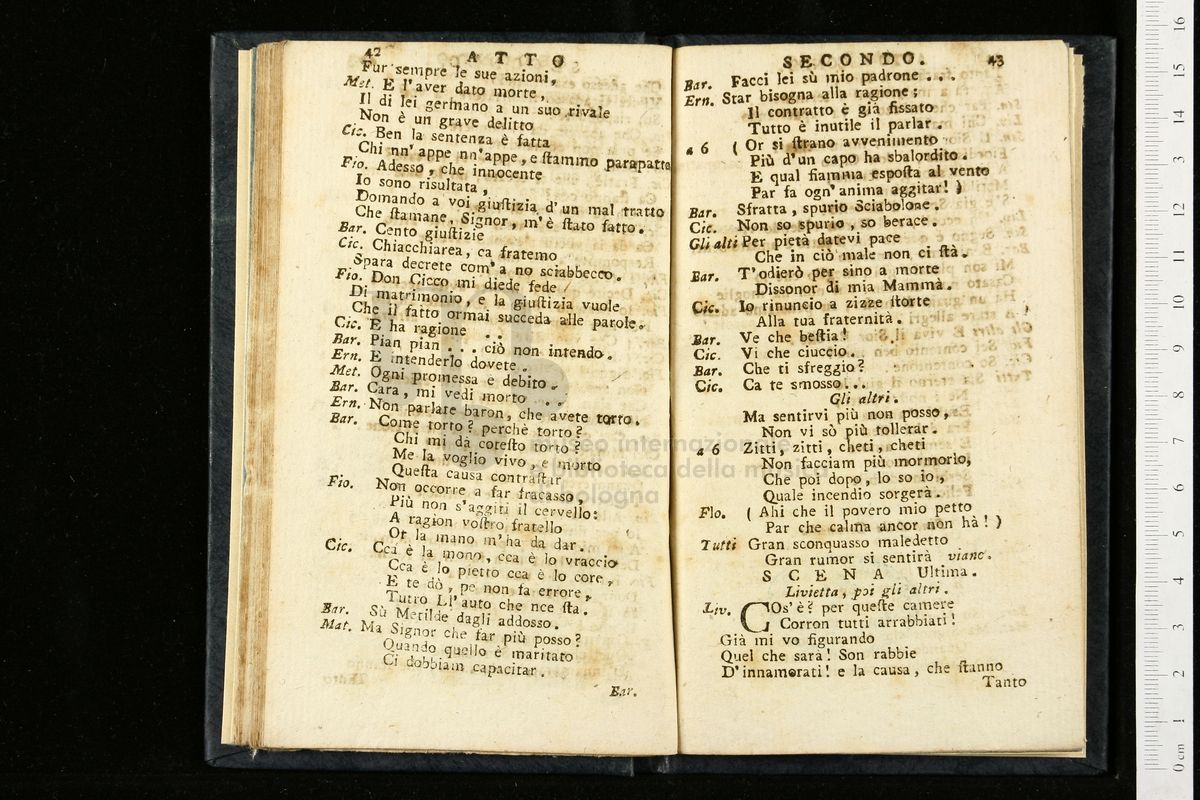 42 ATTO
Fur sempre le sue azioni,
Met. E l'aver dato morte,
Il di lei germano a un suo rivale
Non è un grave delitto
Cic. Ben la sentenza è fatta
Chi nn' appe nn'appe, e ſtammo parapatta
Fio. Adesso, che innocente
Io sono risultata,
Domando a voi giuſtizia d'un mal tratto
Che ſtamane, Signor, m'è ſtato fatto.
Bar. Cento giuſtizie
Cic. Chiacchiarea, ca fratemo
Spara decrete com'a no sciabbecco.
Fio. Don Cicco mi diede fede
Di matrimonio, e la giuſtizia vuole
Che il fatto ormai succeda alle parole.
Cic. E ha ragione
Bar. Pian pian . . . ciò non intendo.
Ern. E intenderlo dovete.
Met. Ogni promessa e debito.
Bar. Cara, mi vedi morto . .
Ern. Non parlare baron, che avete torto.
Bar. Come torto? perchè torto?
Chi mi dà coteſto torto?
Me la voglio vivo, e morto
Queſta causa contraſtar
Fio. Non occorre a far fracasso,
Più non s'aggiti il cervello:
A ragion voſtro fratello
Or la mano m'ha da dar.
Cic. Cca è la mono, cca è lo vraccio
Cca è lo pietto cca è lo core,
E te dò, pe non fa errore,
Tutto Ll'auto che nce ſta.
Bar. Sù Metilde dagli addosso.
Mat. Ma Signor che far più posso?
Quando quello è maritato
Ci dobbiam capacitar.
Bar.
SECONDO. 43
Bar. Facci lei sù mio padrone . . .
Ern. Star bisogna alla ragione;
Il contratto è già fissato
Tutto è inutile il parlar.
a 6 ( Or si ſtrano avvenimento
Più d'un capo ha sbalordito.
E qual fiamma espoſta al vento
Par fa ogn'anima aggitar! )
Bar. Sfratta, spurio Sciabolone.
Cic. Non so spurio, so berace.
Gli alti Per pietà datevi pace
Che in ciò male non ci ſtà.
Bar. T'odierò per sino a morte
Dissonor di mia Mammà.
Cic. Io rinuncio a zizze ſtorte
Alla tua fraternità.
Bar. Ve che beſtia!
Cic. Vi che ciuccio.
Bar. Che ti sfreggio?
Cic. Ca te smosso...
Gli altri.
Ma sentirvi più non posso,
Non vi sò più tollerar.
a 6 Zitti, zitti, cheti, cheti
Non facciam più mormorio,
Che poi dopo, lo so io,
Quale incendio sorgerà.
Flo. ( Ahi che il povero mio petto
Par che calma ancor non hà! )
Tutti Gran sconquasso maledetto
Gran rumor si sentirà vianc.
SCENA Ultima.
Livietta, poi gli altri.
Liv. COs'è? per queſte camere
Corron tutti arrabbiati!
Già mi vo figurando
Quel che sarà! Son rabbie
D'innamorati! e la causa, che ſtanno
Tanto
museo internazionale
biblioteca della musica
bologna
0 cm 1 2 3 4 5 6 7 8 9 10 11 12 13 14 15 16